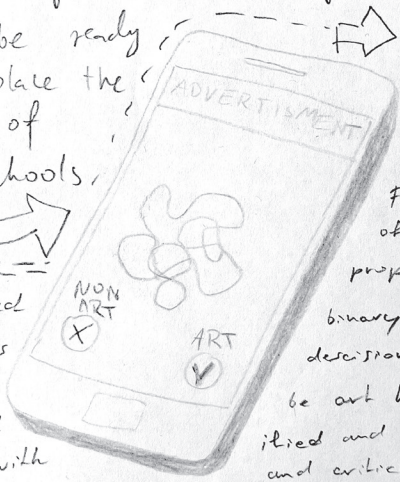 be ready
place the
of
hools,
ADVERTISMENT
NON
ART
X
ART
V
of
prop
binary
descision
be art
ified and
and critic
with